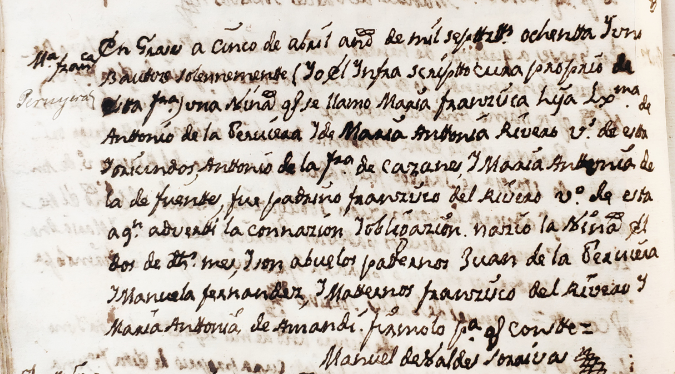 Mª franca
Peruyera
En Grao a cinco de abril año de mil septtos ochentta Y uno
Bautice solennemente (Yo el Infra scriptto cura proprio de
esta fra) una Niña q se llamo Maria franzisca hija Lxma de
Antonio de la Peruiera Y de Maria Anttonia Rivero vos de esta
Y oriundos, Antonio de la fra de Cazanes, Y Maria Anttonia de
la de fuentes, fue padrino franzisco del Rivero vo de esta
a qn adverti la connazion Y obligazion. nazio la Niña el
dos de dho mes, Y son abuelos patternos Juan de la Peruiera
Y Manuela fernandez, Y Matternos franzisco del Rivero Y
Maria Anttonia de Amandi. firmolo pa q constte =
Manuel de Valdes Sorrivas